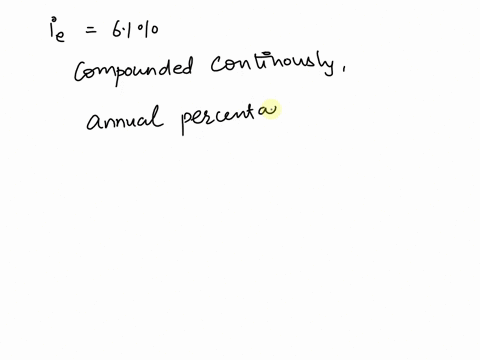 ie = 6.1%
Compounded continously,
annual percenta